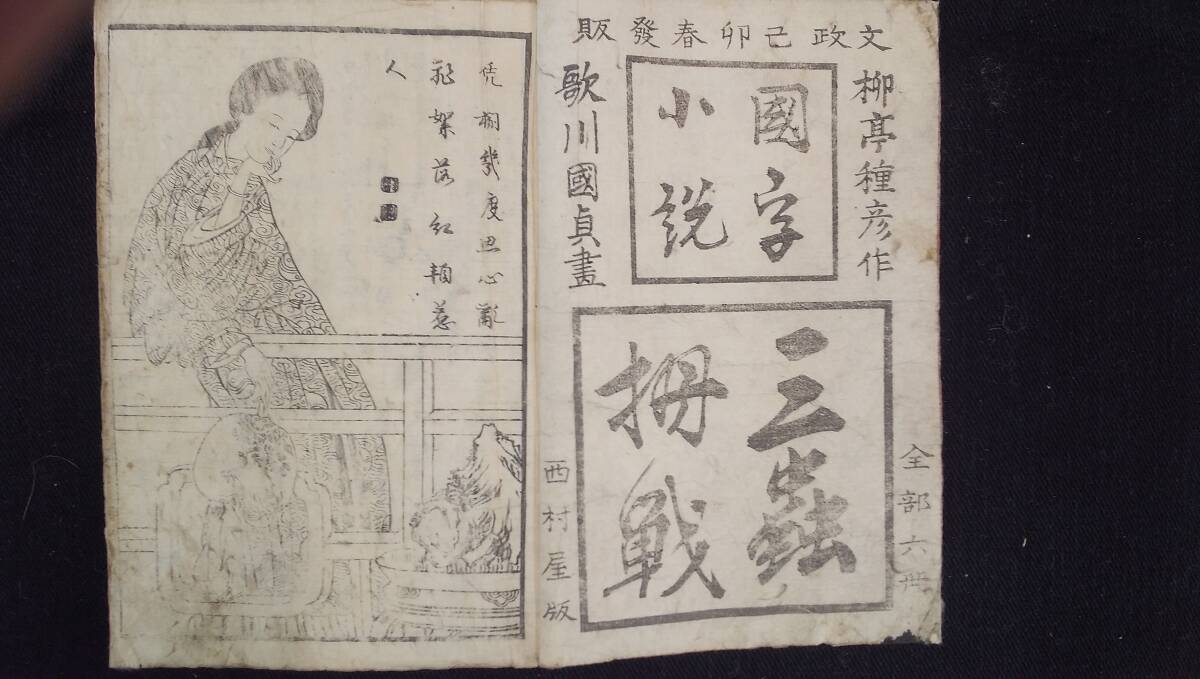 文政己卯春發販
柳亭種彦作
國字
小説
歌川國貞畫
全部六冊
三蟲
拇戰
西村屋版
凭欄幾度思心亂
飛絮落紅頻惹
人